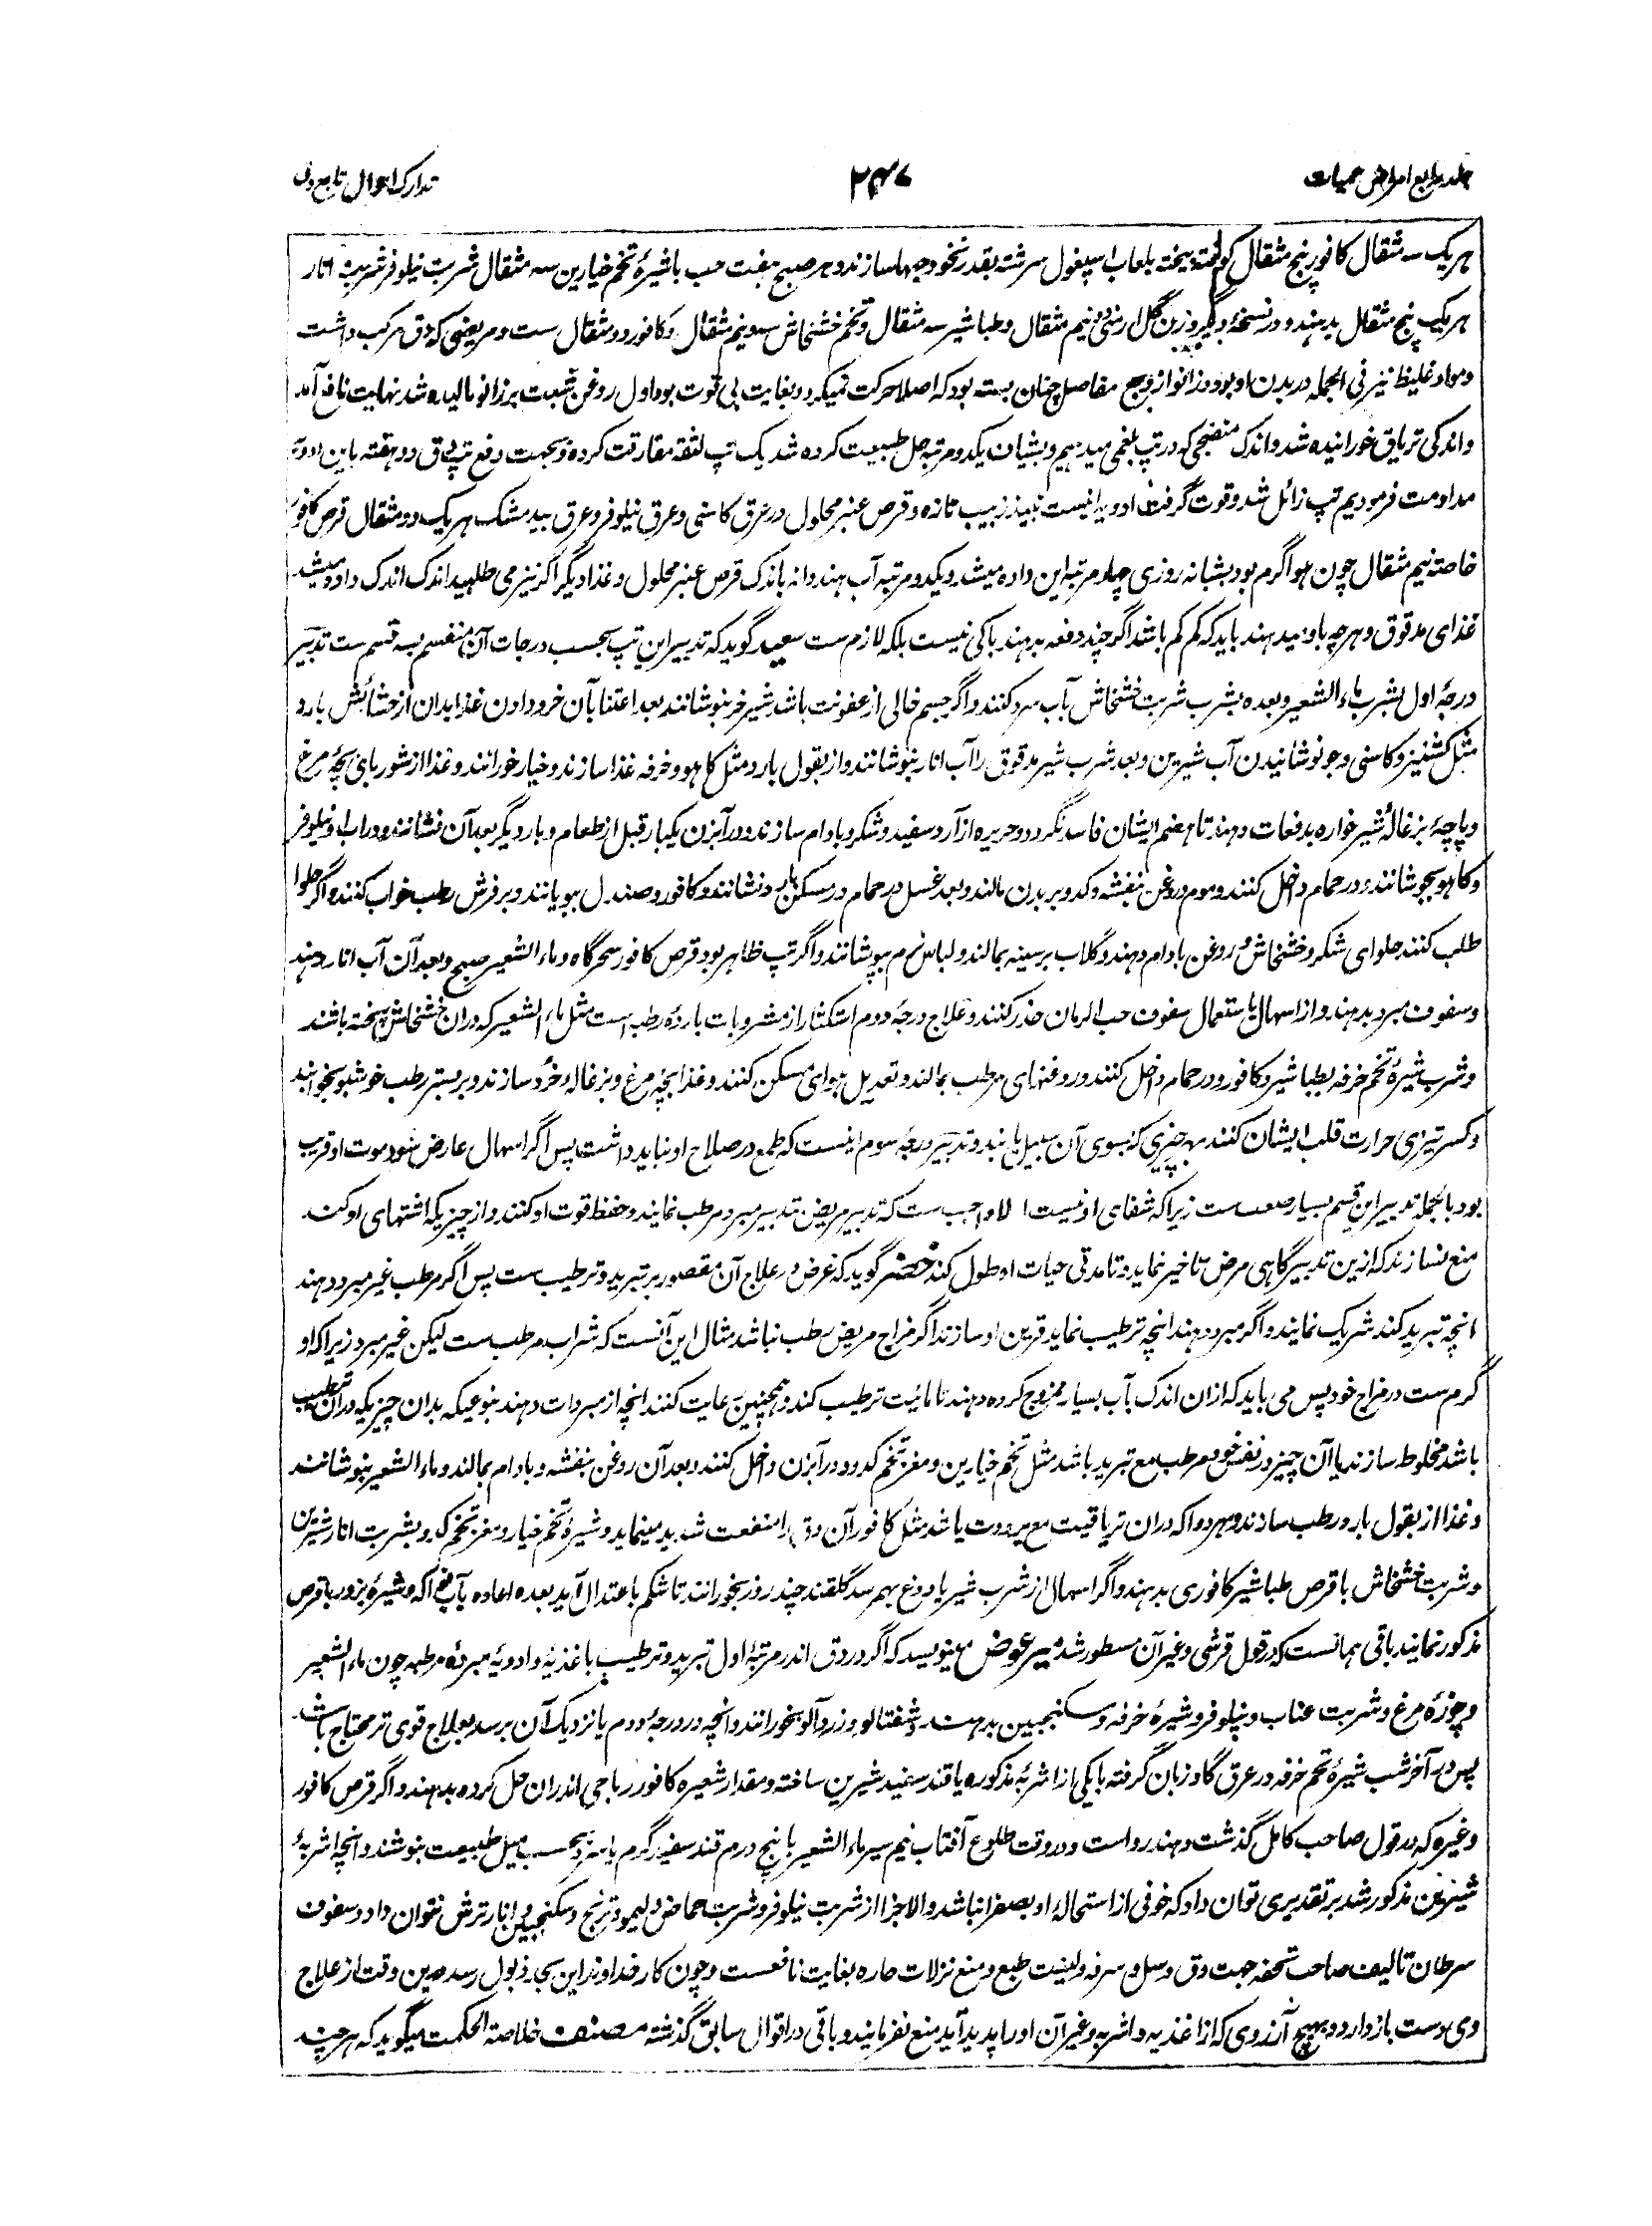 جلد رابع امراض حمیات
۲۴۷
تدارک احوال تابع دق
هریک سه مثقال کافور پنج مثقال کوفته بیخته بلعاب اسپغول سرشته بقدر نخود حبها سازند و هر صبح هفت حب با شیرهٔ تخم خیارین سه مثقال شربت نیلوفر شربت انار
هریک پنج مثقال بدهند و در نسخهٔ دیگر وزن گل ارمنی دو نیم مثقال و طباشیر سه مثقال و تخم خشخاش سه و نیم مثقال و کافور دو مثقال ست و مریضی که دق مرکب داشت
و مواد غلیظ نیز فی الجمله در بدن او بود و زانو از وجع مفاصل چنان بسته بود که اصلا حرکت نمیکرد و بغایت بی قوت بود اول روغن شبت بر زانو مالیده شد نهایت نافع آمد
و اندکی تریاق خورانیده شد و اندک منضجی که در تپ بلغمی میدهیم و بشیان یکدو مرتبه حل طبیعت کرده شد یک تپ لثقه مفارقت کرده و بجهت دفع تپ دق دو هفته باین ادویه
مداومت فرمودیم تپ زائل شد و قوت گرفت ادویه اینست نبیذ زبیب تازه و قرص عنبر محلول در عرق کاسنی و عرق نیلوفر و عرق بید مشک هریک دو مثقال قرص کافور
خاصته نیم مثقال چون هوا گرم بود بشبانه روزی چهار مرتبه این داده میشد و یکدو مرتبه آب هندوانه باندک قرص عنبر محلول و غذا دیگر اگر نیز می طلبید اندک اندک داده میشد
غذای مدقوق و هرچه باو میدهند باید که کم کم باشد اگر چند دفعه بدهند باکی نیست بلکه لازم ست سعید گوید که تدبیر این تپ بحسب درجات آن منقسم بسه قسم ست تدبیر
درجهٔ اول بشرب ماء الشعیر و بعده بشرب شربت خشخاش بآب سرد کنند و اگر جسم خالی از عفونت باشد شیر خر بنوشانند بعد اعتنا بآن خر و دادن غذا بدان از حشائش بارد
مثل کشنیز و کاسنی و جو نوشانیدن آب شیرین و بعد شرب شیر مدقوق را آب انار بنوشانند و از بقول بارد مثل کاهو و خرفه غذا سازند و خیار خورانند و غذا از شوربای بچهٔ مرغ
و پاچهٔ بزغالهٔ شیر خواره بدفعات دهند تا هضم ایشان فاسد نگردد و حریره از آرد سفید و شکر و بادام سازند و در آبزن یکبار قبل از طعام و بار دیگر بعد آن نشانند و در آب او نیلوفر
و کاهو بجوشانند و در حمام داخل کنند و موم روغن بنفشه و کدو بر بدن مالند و بعد غسل در حمام در مسکن بارد نشانند و کافور و صندل ببویانند و بر فرش رطب خواب کنند و اگر حلوا
طلب کنند حلوای شکر و خشخاش و روغن بادام دهند و گلاب بر سینه بمالند و لباس نرم بپوشانند و اگر تپ ظاهر بود قرص کافور سحرگاه و ماء الشعیر صبح و بعد آن آب انار دهند
و سفوف مبرد بدهند و از اسهال باستعمال سفوف حب الرمان حذر کنند و علاج درجهٔ دوم استکثار از مشروبات باردهٔ رطبه است مثل ماء الشعیر که دران خشخاش پخته باشند
و شرب شیرهٔ تخم خرفه بطباشیر و کافور و در حمام داخل کنند و روغنهای مرطب بمالند و تعدیل هوای مسکن کنند و غذا بچهٔ مرغ و بزغاله خرد سازند و بر بستر رطب خوشبو بخوابانند
و کسر تیزی حرارت قلب ایشان کنند بهر چیزی که بسوی آن سبیل یابند و تدبیر درجهٔ سوم اینست که طمع در صلاح او نباید داشت پس اگر اسهال عارض شود موت او قریب
بود بالجمله تدبیر این قسم بسیار صعب ست زیرا که شفای او نیست الا واجب ست که تدبیر مریض بتدبیر مبرد مرطب نمایند و حفظ قوت او کنند و از چیزیکه اشتهای او کند
منع نسازند که ازین تدبیر گاهی مرض تاخیر نماید و تا مدتی حیات او طول کند خضر گوید که غرض در علاج آن مقصور بر تبرید و ترطیب ست پس اگر مرطب غیر مبرد دهند
انچه تبرید کند شریک نمایند و اگر مبرد دهند انچه ترطیب نماید قرین او سازند اگر مزاج مریض رطب نباشد مثال این آنست که شراب مرطب ست لیکن غیر مبرد زیرا که او
گرم ست در مزاج خود پس می باید که ازان اندک بآب بسیار ممزوج کرده دهند تا مائیت ترطیب کند و همچنین رعایت کنند انچه از مبردات دهند بنوعیکه بدان چیزیکه دران ترطیب
باشد مخلوط سازند یا آن چیز در نفس خود مرطب مع تبرید باشد مثل تخم خیارین و مغز تخم کدو و در آبزن داخل کنند و بعد آن روغن بنفشه و بادام بمالند و ماء الشعیر بنوشانند
و غذا از بقول بارد رطب سازند و هر دوا که دران تریاقیت مع برودت باشد مثل کافور آن دق را منفعت شدید مینماید و شیرهٔ تخم خیار و مغز تخم کدو بشربت انار شیرین
و شربت خشخاش با قرص طباشیر کافوری بدهند و اگر اسهال از شرب شیر یا دوغ بهم رسد گلقند چند روز بخورانند تا شکم باعتدال آید بعده اعاده بآب فواکه و شیرهٔ بزور با قرص
مذکور نمایند باقی همانست که در قول قرشی و غیر آن مسطور شد میر عوض مینویسد که اگر در دق اندر مرتبهٔ اول تبرید و ترطیب باغذیهٔ و ادویهٔ مبردهٔ مرطبه چون ماء الشعیر
و چوزهٔ مرغ و شربت عناب و نیلوفر و شیرهٔ خرفه و سکنجبین بدهند و شفتالو و زرد آلو بخورانند و انچه در درجهٔ دوم یا نزدیک آن برسد بعلاج قوی تر محتاج باشد
پس در آخر شب شیرهٔ تخم خرفه در عرق گاو زبان گرفته بایکی از اشربهٔ مذکوره یا قند سفید شیرین ساخته و مقدار شعیره کافور رباحی اندران حل کرده بدهند و اگر قرص کافور
و غیره که در قول صاحب کامل گذشت دهند رواست و در وقت طلوع آفتاب نیم سیر ماء الشعیر با پنج درم قند سفید گرم یا سرد بحسب میل طبیعت بنوشند و انچه اشربهٔ
شیرین مذکور شد بر تقدیری توان داد که خوفی از استحالهٔ او بصفرا نباشد و الا جز از شربت نیلوفر و شربت حماض و لیمو و ترنج و سکنجبین انار ترش نتوان داد و سفوف
سرطان تالیف صاحب تحفه جهت دق و سل و سرفه و لینت طبع و منع نزلات حاره بغایت نافعست و چون کار خداوند این بحد ذبول رسد درین وقت از علاج
وی دست باز دارد و بهیچ آرزوی که از اغذیه و اشربه و غیر آن او را پدید آید منع نفرمایند و باقی در اقوال سابق گذشته مصنف خلاصة الحکمت میگوید که هر چند